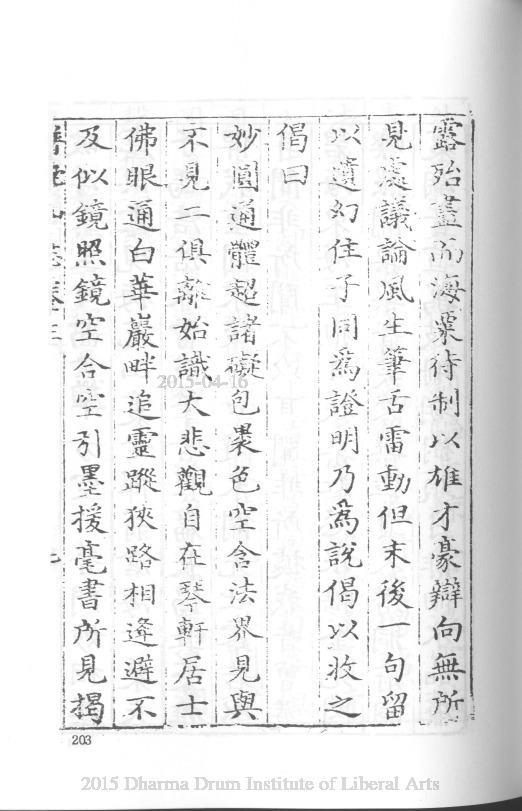 露殆盡而海粟待制以雄才豪辯向無所
見處議論風生筆舌雷動但末後一句留
以遺幻住子同為證明乃為說偈以收之
偈曰
妙圓通體超諸礙包裹色空含法界見與
不見二俱離始識大悲觀自在琴軒居士
佛眼通白華巖畔追靈蹤狹路相逢避不
及似鏡照鏡空合空引墨援毫書所見揭
203
2015-04-16
2015 Dharma Drum Institute of Liberal Arts